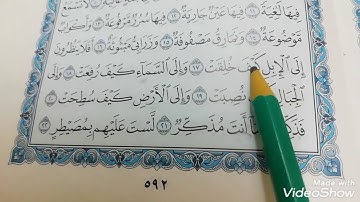 فِيهَا لَٰغِيَةً ١١ فِيهَا عَيْنٌ جَارِيَةٌ ١٢ فِيهَا سُرُرٌ مَّرْفُوعَةٌ ١٣ وَأَكْوَابٌ
مَّوْضُوعَةٌ ١٤ وَنَمَارِقُ مَصْفُوفَةٌ ١٥ وَزَرَابِيُّ مَبْثُوثَةٌ ١٦ أَفَلَا يَنظُرُونَ
إِلَى ٱلْإِبِلِ كَيْفَ خُلِقَتْ ١٧ وَإِلَى ٱلسَّمَآءِ كَيْفَ رُفِعَتْ ١٨ وَإِلَى
ٱلْجِبَالِ نُصِبَتْ ١٩ وَإِلَى ٱلْأَرْضِ كَيْفَ سُطِحَتْ ٢٠
فَذَكِّرْ أَنتَ مُذَكِّرٌ ٢١ لَّسْتَ عَلَيْهِم بِمُصَيْطِرٍ ٢٢
٥٩٢
Made with
VideoShow